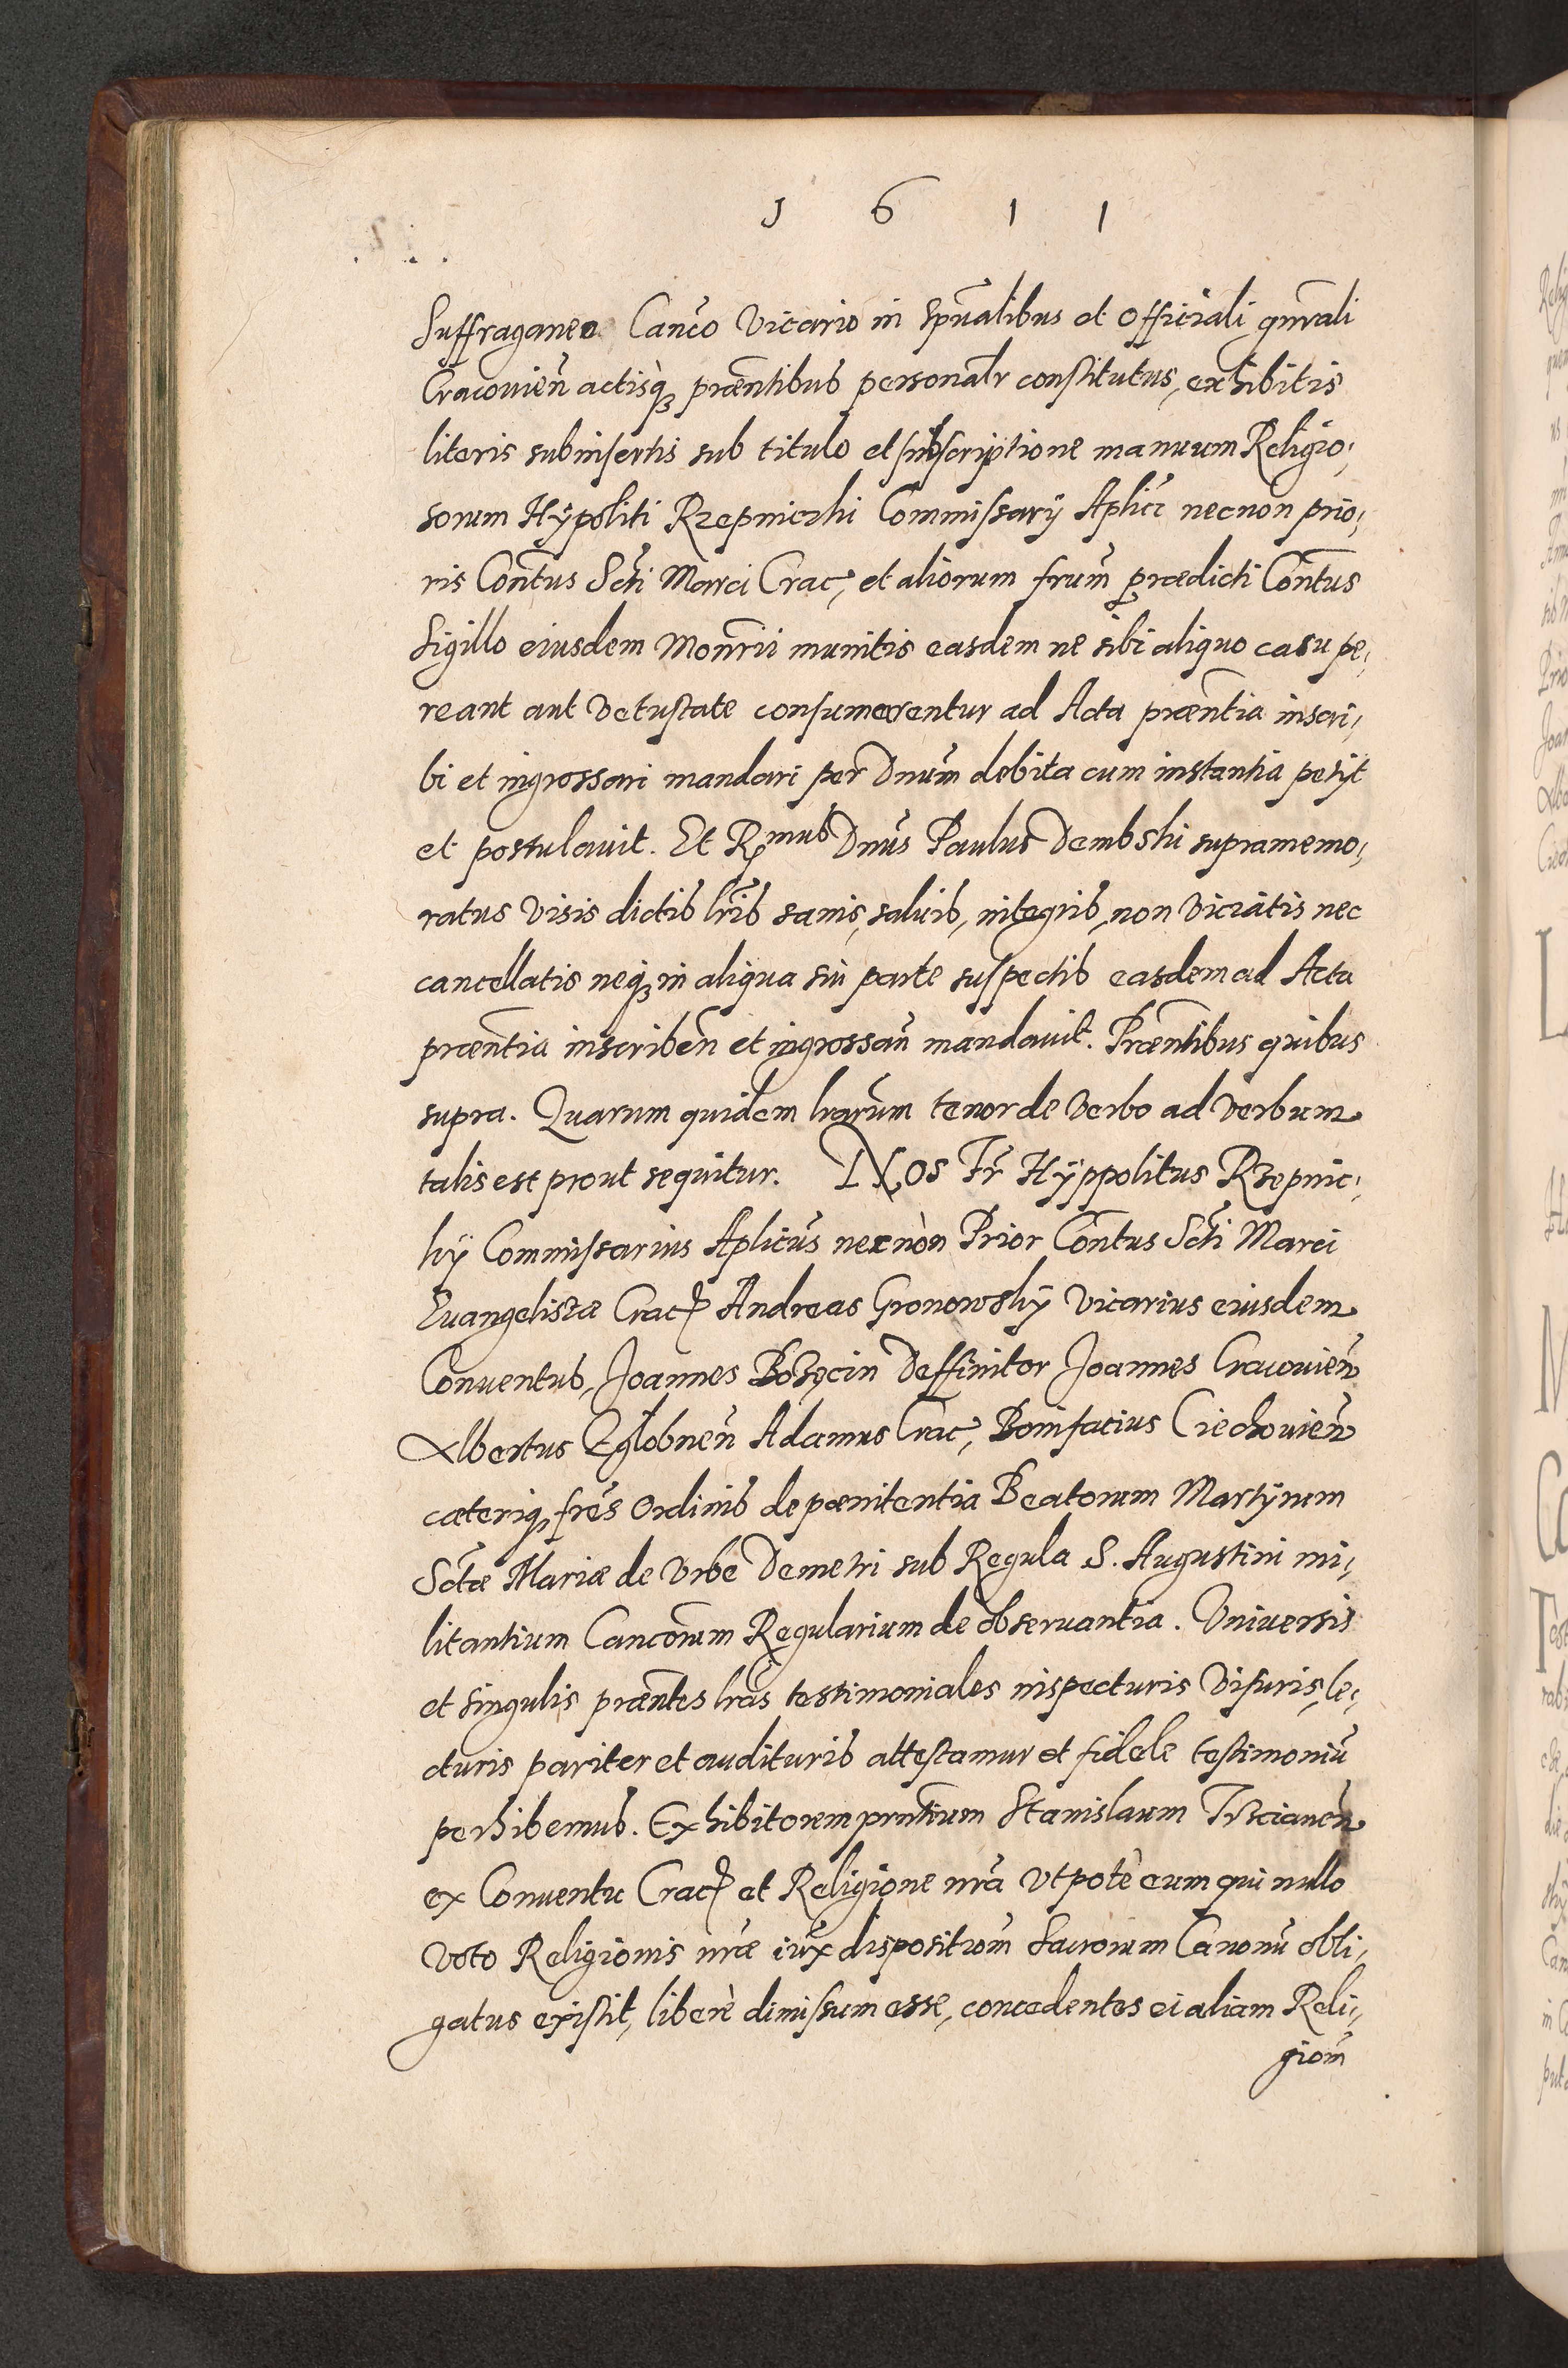 1 6 1 1
Suffraganeo Canco Vicario in Spūalibus et Officiali gnrali
Cracouien̄ actisq3 præntibus personalr constitutus, exhibitis
literis subinsertis sub titulo et subscriptione manuum Religio,
sorum Hÿpoliti Rzepniczki Commissarÿ Aplici necnon prio,
ris Contus Scti Marci Crac, et aliorum frum prædicti Contus
Sigillo eiusdem Monrii munitis easdem ne sibi aliquo casu pe,
reant aut Vetustate consumerentur ad Acta præntia inscri,
bi et ingrossari mandari per Dnum debita cum instantia petÿt
et postulauit. Et Rmus Dnus Paulus Dembski supramemo,
ratus Visis dictis lris sanis, saluis, integris, non Viciatis nec
cancellatis neq3 in aliqua sui parte suspectis easdem ad Acta
præntia inscriben̄ et ingrossan̄ mandauit. Præntibus quibus
supra. Quarum quidem lrarum tenor de Verbo ad Verbum
talis est prout sequitur. NOS Fr Hÿppolitus Rzepnic,
kÿ Commissarius Aplicus necnòn Prior Contus Scti Marci
Euangelistæ Crac Andreas Gronowskÿ Vicarius eiusdem
Conuentus, Joannes Bozęcin Deffinitor Joannes Cracouien̄
Albertus Eglobnen̄ Adamus Crac, Bonifacius Ciechouien̄
cæteriq3 fres Ordinis de pænitentia Beatorum Martÿrum
Sctæ Mariæ de Vrbe Demetri sub Regula S. Augustini mi,
litantium Canconum Regularium de obseruantia. Vniuersis
et singulis præntes lras testimoniales inspecturis Visuris, le,
cturis pariter et audituris attestamur et fidele testimoniū
perhibemus. Exhibitorem prntium Stanislaum Trzcianen̄
ex Conuentu Crac et Religione nra Vt potè eum qui nullo
Voto Religionis nræ iux dispositiom Sacrorum Canonū obli,
gatus existit, liberè dimissum esse, concedentes ei aliam Reli,
giom